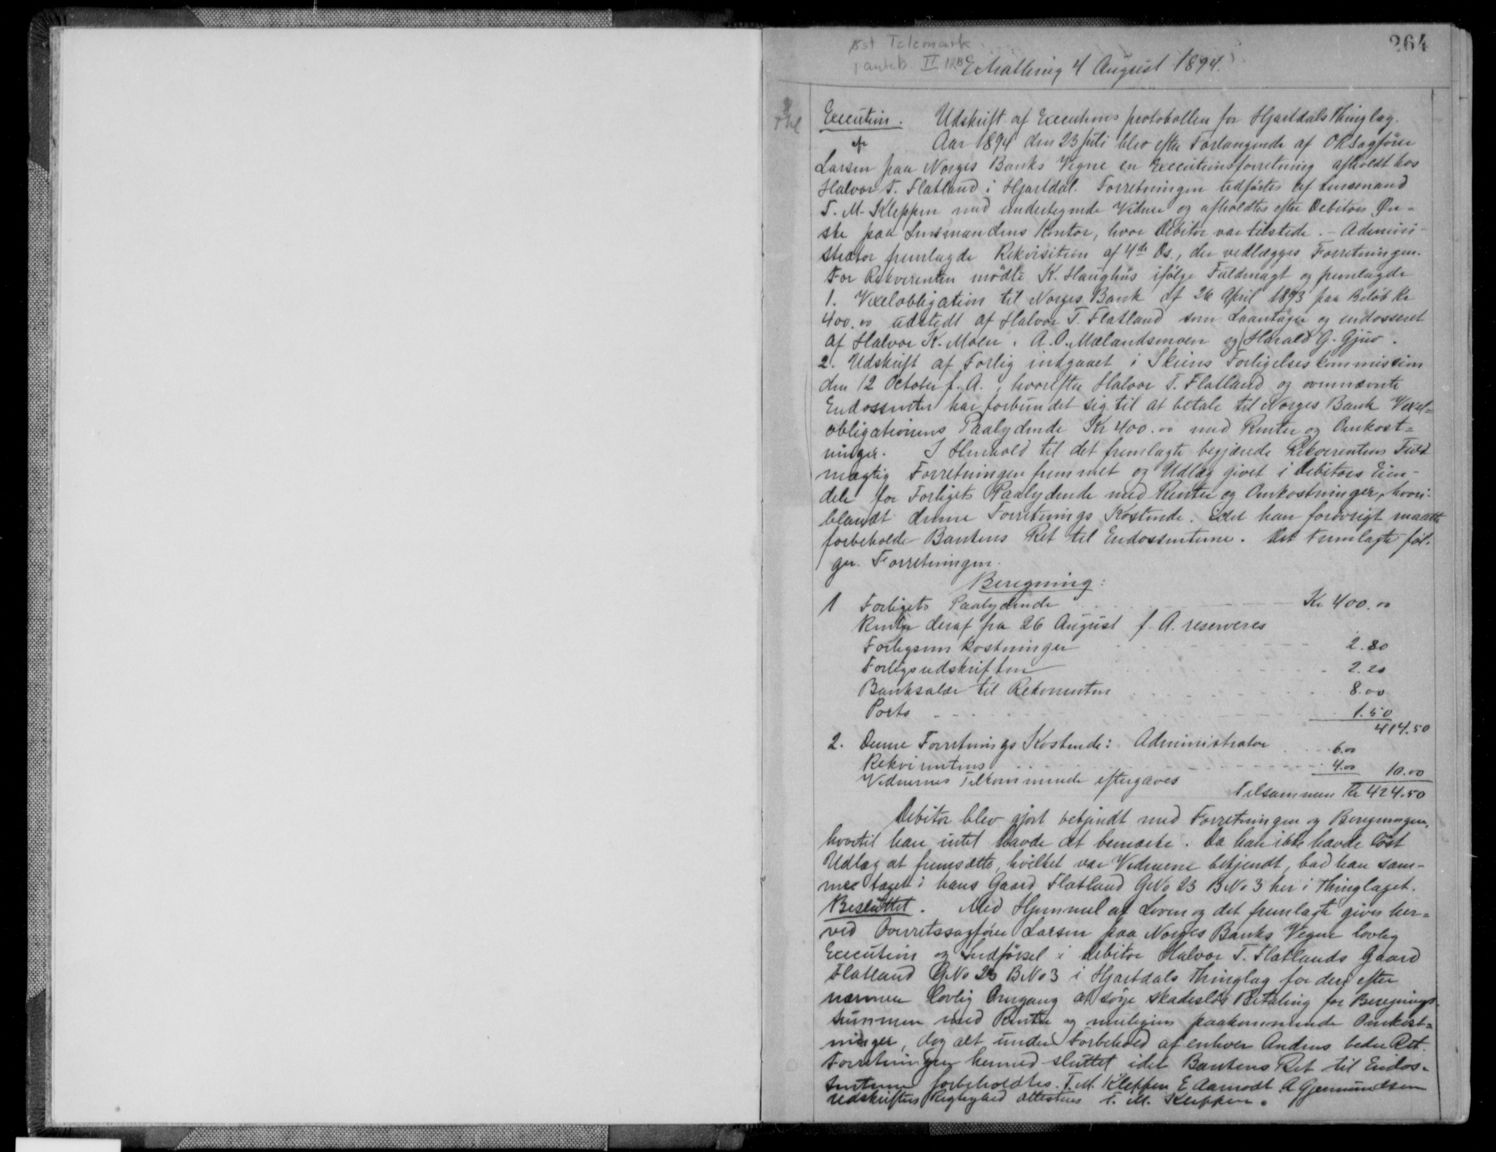 Øst Telemark
panteb. II 12 B
264
Extrathing 4 August 1894.
Execution. Udskrift af Executionsprotokollen for Hjartdals Thinglag.
Aar 1894 den 23 Juli blev efter Forlangende af ORsagfører
Larsen paa Norges Banks Vegne en Executionsforretning afholdt hos
Halvor T. Flatland i Hjartdal. Forretningen udførtes af Lensmand
T. M. Kleppen med undertegnede Vidner og afholdtes efter Debitors Øn-
ske paa Lensmandens Kontor, hvor Debitor var tilstede. - Admini-
strator fremlagde Rekvisition af 4de Ds., der vedlægges Forretningen.
For Rekvirenten mødte K. Haughus ifølge Fuldmagt og fremlagde
1. Vexelobligation til Norges Bank af 26 April 1893 paa Beløb Kr
400.00 udstedt af Halvor T. Flatland som Laantager og endosseret
af Halvor K. Moen, A. O. Mælandsmoen og Harald G. Gjuv.
2. Udskrift af Forlig indgaaet i Skiens Forligelseskommission
den 12 October f. A., hvorefter Halvor T. Flatland og ovennævnte
Endossenter har forbundet sig til at betale til Norges Bank Vexel-
obligationens Paalydende Kr 400.00 med Renter og Omkost-
ninger. I Henhold til det fremlagte begjærede Rekvirentens Fuld
mægtig Forretningen fremmet og Udlæg givet i Debitors Eien-
dele for Forligets Paalydende med Renter og Omkostninger, hvori-
blandt denne Forretnings Kostende. Idet han forøvrigt maatte
forbeholde Bankens Ret til Endossenterne. Det fremlagte føl-
ger Forretningen.
Beregning:
1 Forligets Paalydende Kr 400.00
Renter deraf fra 26 August f. A. reserveres
Forligsomkostninger 2.80
Forligsudskriften 2.20
Banksalær til Rekvirenten 8.00
Porto 1.50
414.50
2. Denne Forretnings Kostende: Administrator 6.00
Rekvirentens 4.00 10.00
Vidnernes Tilkommende eftergaves Tilsammen Kr 424.50
Debitor blev gjort bekjendt med Forretningen og Beregningen,
hvortil han intet havde at bemærke. Da han ikke havde løst
Udlæg at fremsætte, hvilket var Vidnerne bekjendt, bad han sam-
me taget i hans Gaard Flatland GNo 23 BNo 3 her i Thinglaget.
Besluttet. Med Hjemmel af Loven og det fremlagte gives her-
ved Overretssagfører Larsen paa Norges Banks Vegne lovlig
Execution og Indførsel i Debitor Halvor T. Flatlands Gaard
Flatland GNo 23 BNo 3 i Hjartdals Thinglag for deri efter
nærmere lovlig Omgang at søge skadesløs Betaling for Beregnings-
summen med Renter og muligens paakommende Omkost-
ninger, dog alt under Forbehold af enhver Andens bedre Ret.
Forretningen hermed sluttet idet Bankens Ret til Endos-
senterne forbeholdtes. T. M. Kleppen E Aamodt A Gjermundsen
Udskriftens Rigtighed attesteres T. M. Kleppen.